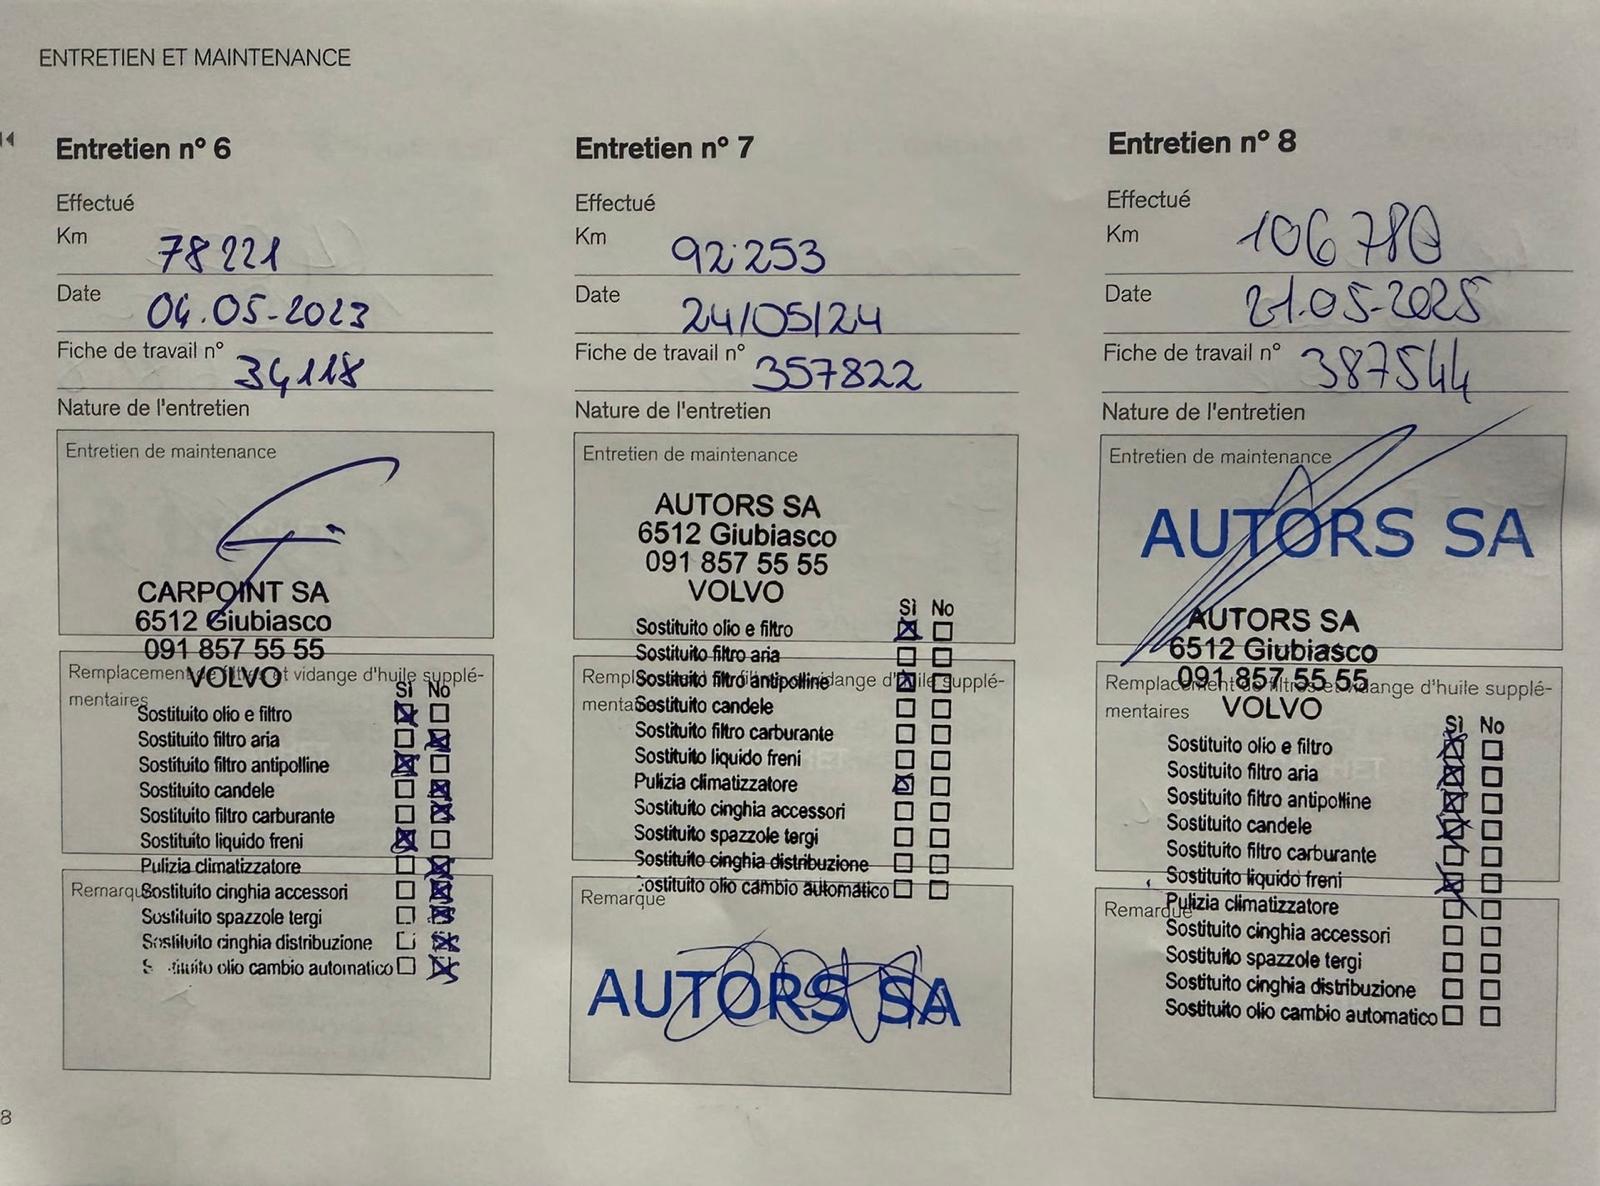 ENTRETIEN ET MAINTENANCE
Entretien n° 6
Effectué
Km 78221
Date 04.05-2023
Fiche de travail n° 34118
Nature de l'entretien
Entretien de maintenance
CARPOINT SA
6512 Giubiasco
091 857 55 55
VOLVO
Remplacement de filtres et vidange d'huile supplé-
mentaires
Sì No
Sostituito olio e filtro
Sostituito filtro aria
Sostituito filtro antipolline
Sostituito candele
Sostituito filtro carburante
Sostituito liquido freni
Pulizia climatizzatore
Remarque
Sostituito cinghia accessori
Sostituito spazzole tergi
Sostituito cinghia distribuzione
Sostituito olio cambio automatico
8
Entretien n° 7
Effectué
Km 92.253
Date 24/05/24
Fiche de travail n° 357822
Nature de l'entretien
Entretien de maintenance
AUTORS SA
6512 Giubiasco
091 857 55 55
VOLVO
Sì No
Sostituito olio e filtro
Sostituito filtro aria
Remplacement de filtres et vidange d'huile supplé-
mentaires
Sostituito filtro antipolline
Sostituito candele
Sostituito filtro carburante
Sostituito liquido freni
Pulizia climatizzatore
Sostituito cinghia accessori
Sostituito spazzole tergi
Sostituito cinghia distribuzione
Sostituito olio cambio automatico
Remarque
AUTORS SA
Entretien n° 8
Effectué
Km 106780
Date 21.05-2025
Fiche de travail n° 387544
Nature de l'entretien
Entretien de maintenance
AUTORS SA
AUTORS SA
6512 Giubiasco
091 857 55 55
VOLVO
Remplacement de filtres et vidange d'huile supplé-
mentaires
Sì No
Sostituito olio e filtro
Sostituito filtro aria
Sostituito filtro antipolline
Sostituito candele
Sostituito filtro carburante
Sostituito liquido freni
Remarque
Pulizia climatizzatore
Sostituito cinghia accessori
Sostituito spazzole tergi
Sostituito cinghia distribuzione
Sostituito olio cambio automatico